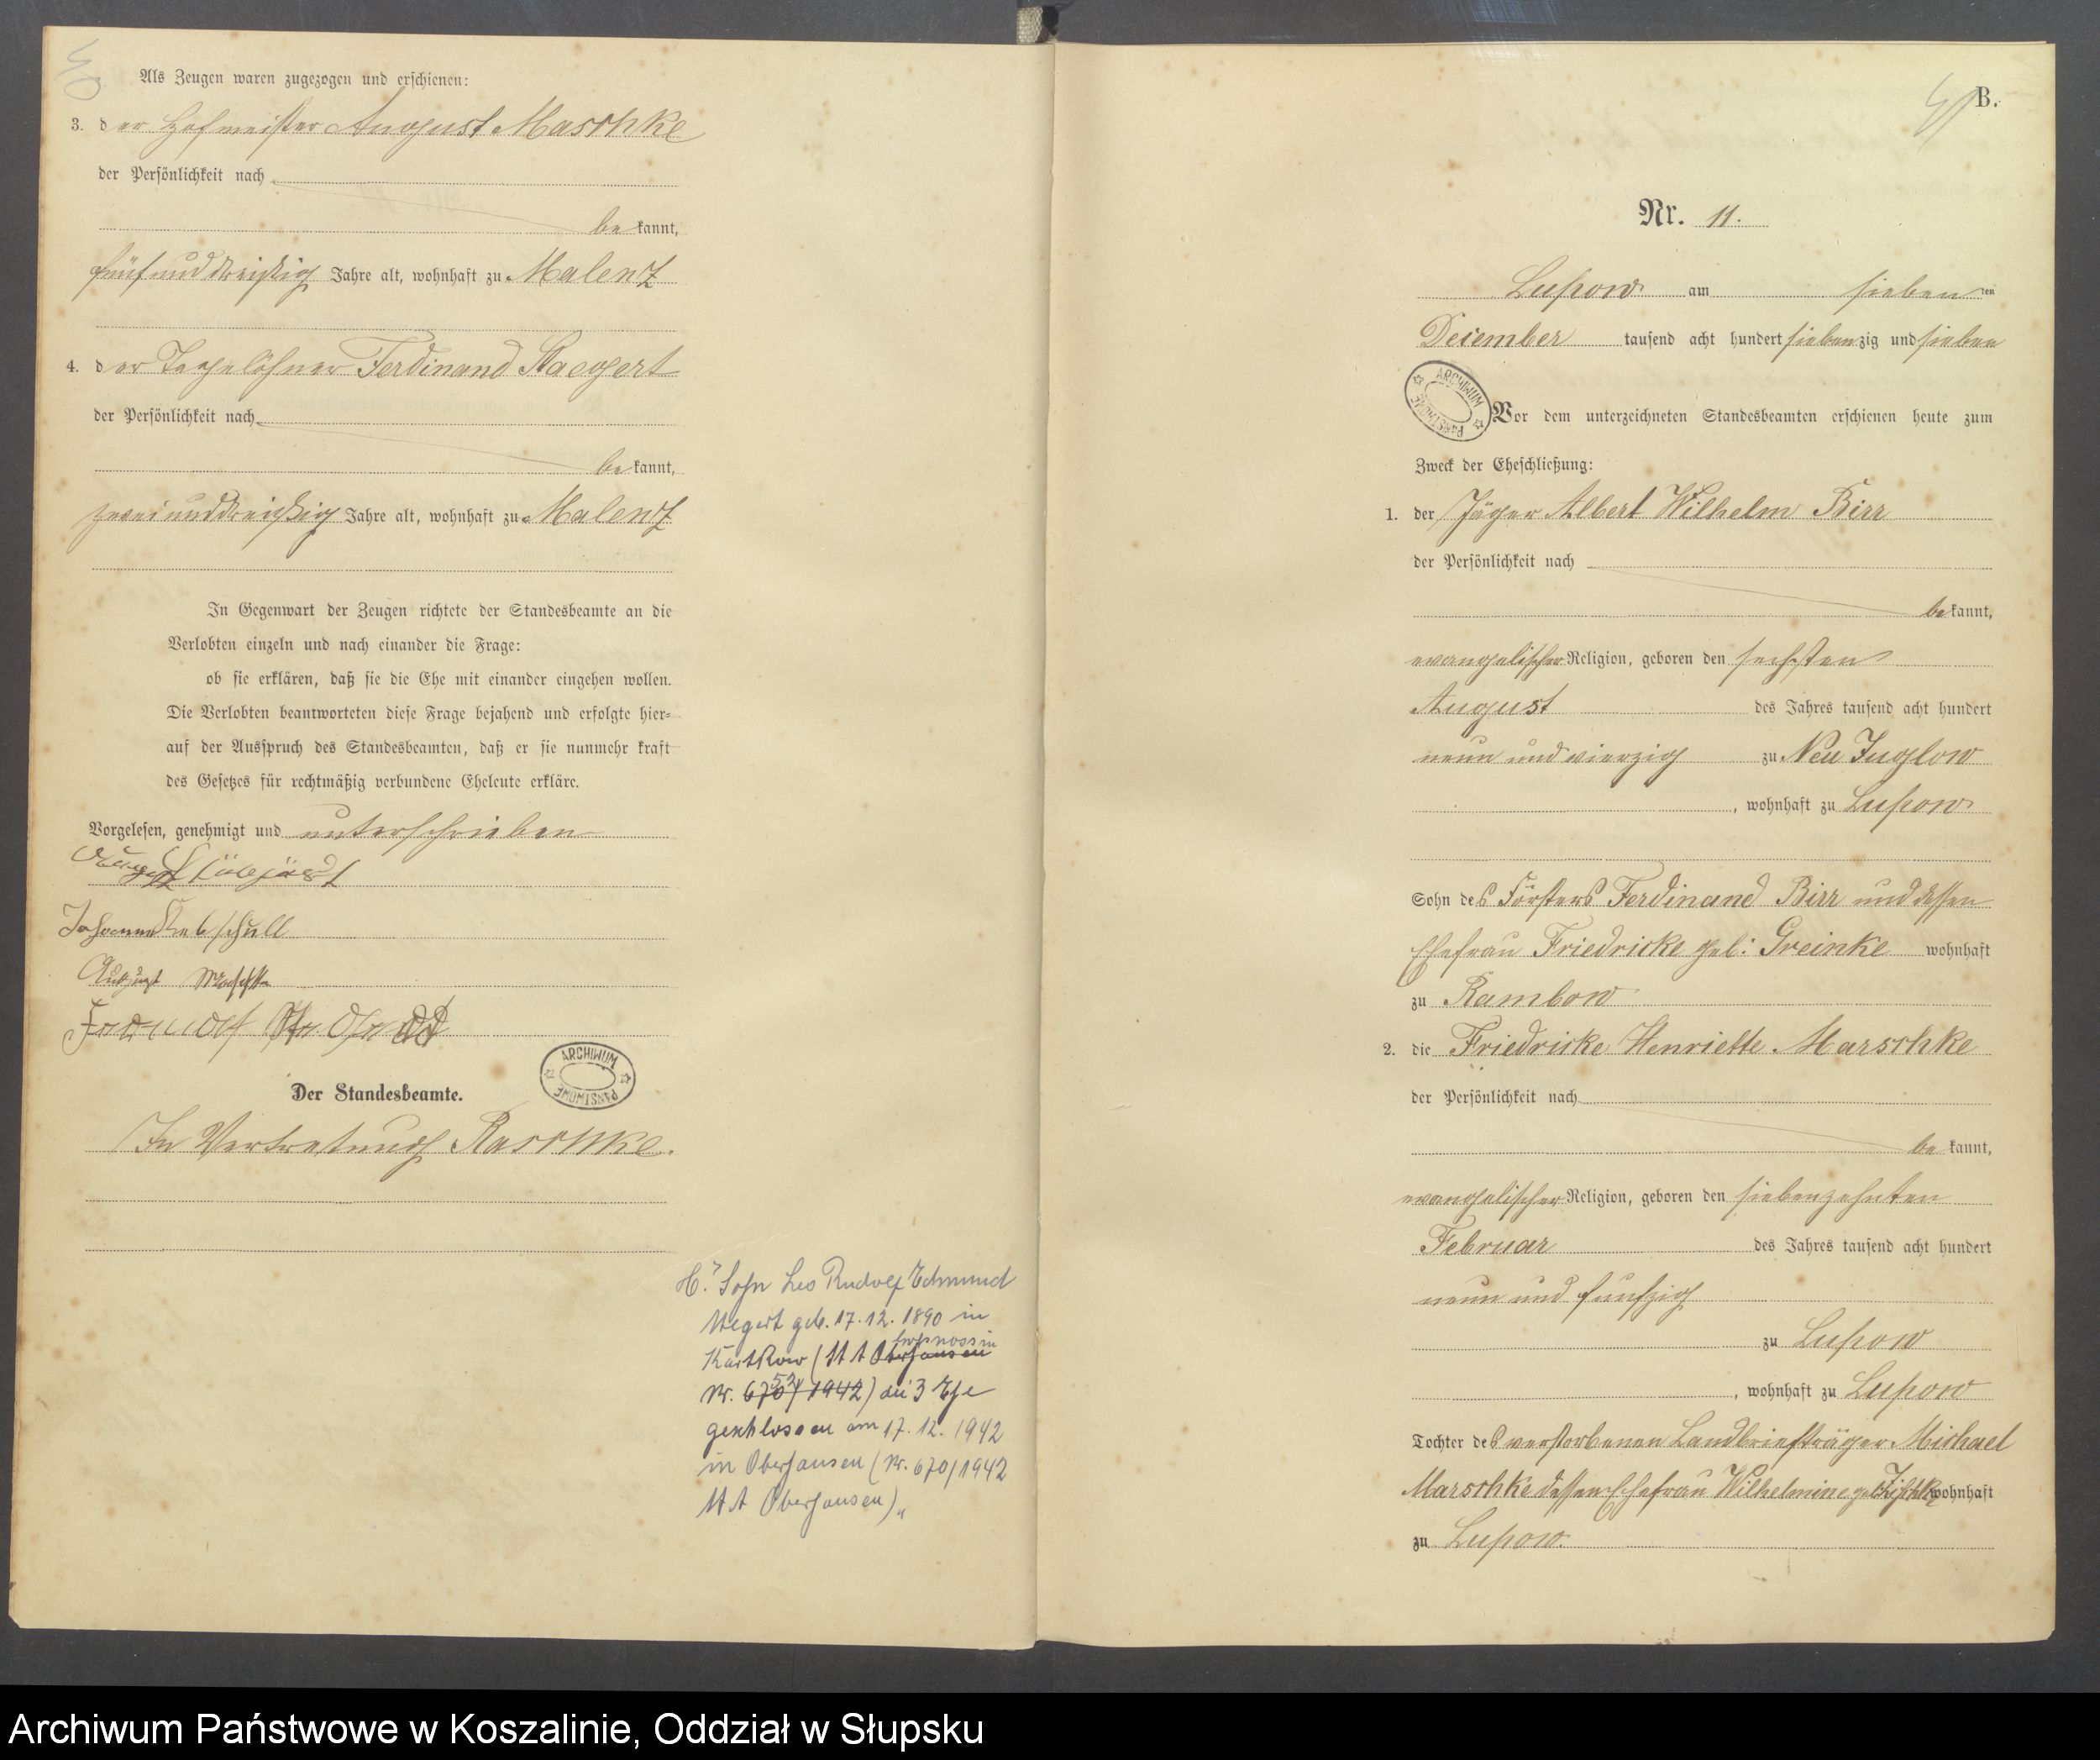 Als Zeugen waren zugezogen und erschienen:
3. der Hofmeister August Maschke
der Persönlichkeit nach
bekannt,
fünf und dreißig Jahre alt, wohnhaft zu Malenz
4. der Tagelöhner Ferdinand Staegert
der Persönlichkeit nach
bekannt,
zwei und dreißig Jahre alt, wohnhaft zu Malenz
In Gegenwart der Zeugen richtete der Standesbeamte an die
Verlobten einzeln und nach einander die Frage:
ob sie erklären, daß sie die Ehe mit einander eingehen wollen.
Die Verlobten beantworteten diese Frage bejahend und erfolgte hier-
auf der Ausspruch des Standesbeamten, daß er sie nunmehr kraft
des Gesetzes für rechtmäßig verbundene Eheleute erkläre.
Vorgelesen, genehmigt und unterschrieben
August
August
Der Standesbeamte.
ARCHIWUM PAŃSTWOWE
In Vertretung Raschke.
Sohn Leo Rudolf Edmund
geb. 17.12.1890 in
Kartkow (StA Oberhausen
Nr. 670/1942) die 3 Ehe
geschlossen am 17.12.1942
in Oberhausen (Nr. 670/1942
StA Oberhausen)
B.
Nr. 11.
Lupow am sieben ten
Dezember tausend acht hundert siebenzig und sieben
ARCHIWUM PAŃSTWOWE
Vor dem unterzeichneten Standesbeamten erschienen heute zum
Zweck der Eheschließung:
1. der Jäger Albert Wilhelm Birr
der Persönlichkeit nach
bekannt,
evangelischer Religion, geboren den sechsten
August des Jahres tausend acht hundert
neun und vierzig zu Neu Juglow
, wohnhaft zu Lupow
Sohn des Försters Ferdinand Birr und dessen
Ehefrau Friedricke geb: Greinke wohnhaft
zu Rambow
2. die Friedricke Henriette Marschke
der Persönlichkeit nach
bekannt,
evangelischer Religion, geboren den siebenzehnten
Februar des Jahres tausend acht hundert
neun und funfzig
zu Lupow
, wohnhaft zu Lupow
Tochter des verstorbenen Landbriefträger Michael
Marschke dessen Ehefrau Wilhelmine geb wohnhaft
zu Lupow.
Archiwum Państwowe w Koszalinie, Oddział w Słupsku